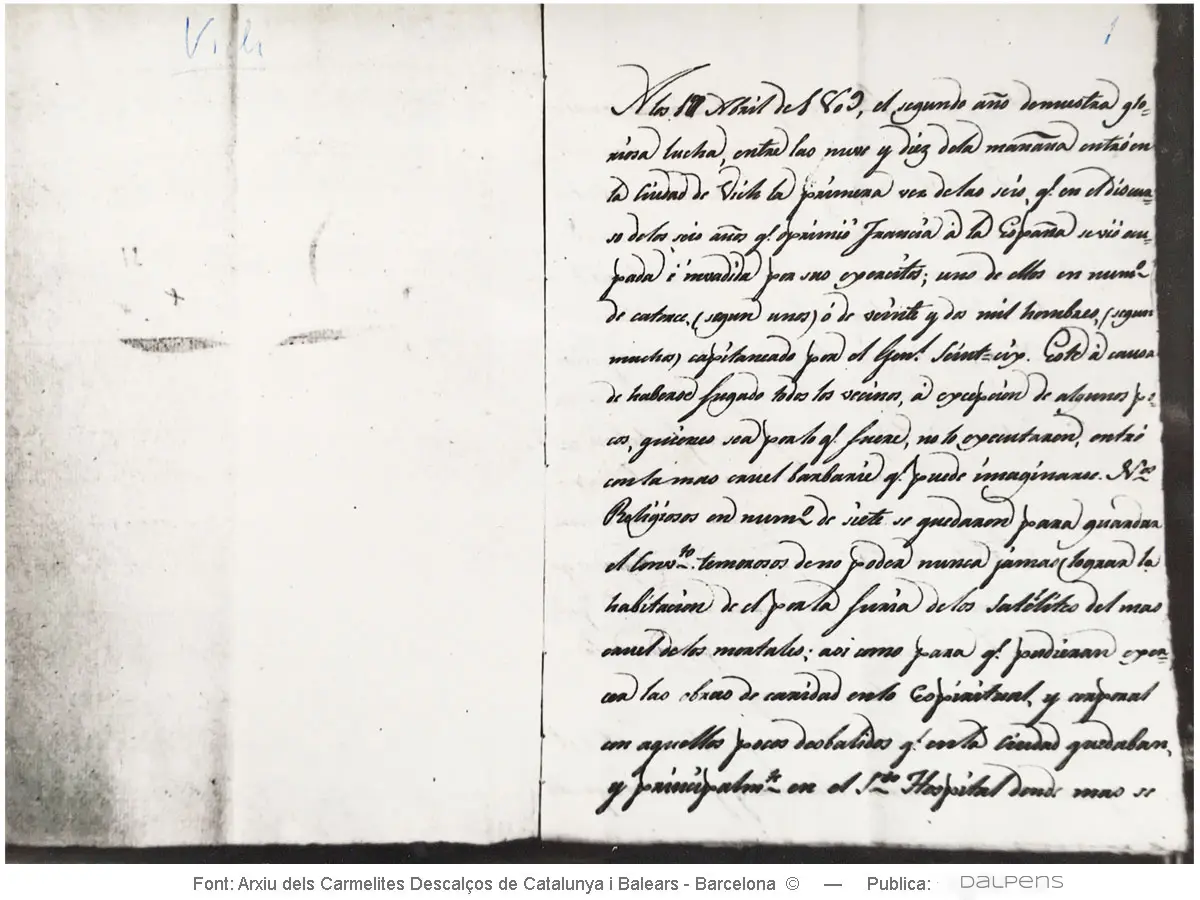 Vich
1
A los 17 Abril de 1809, el segundo año de nuestra glo=
riosa lucha, entre las nueve y diéz dela mañana entró en
la Ciudad de Vich la primera vez de las seis, q.e en el discur=
so delos seis años q.e oprimió Francia à la España se vió ocu=
pada è invadida por sus exercitos; uno de ellos en num.o
de catorce, (segun unos) ó de veinte y dos mil hombres, (segun
muchos) capitaneado por el Gen.l Seint=cir. Este à causa
de haberse fugado todos los vecinos, à excepcion de algunos po=
cos, quienes sea por lo q.e fuere, no lo executaron, entró
con la mas cruel barbarie q.e puede imaginarse. N.os
Religiosos en num.o de siete se quedaron para guardar
el Conv.to temerosos de no poder nunca jamas lograr la
habitacion de el por la furia de los satélites del mas
cruel de los mortales; asi como para q.e pudieran exer=
cer las obras de caridad en lo Espiritual, y corporal
con aquellos pocos desbalidos q.e en la Ciudad quedaban,
y principalm.te en el S.to Hospital donde mas se
Font: Arxiu dels Carmelites Descalços de Catalunya i Balears - Barcelona © — Publica: DALPENS